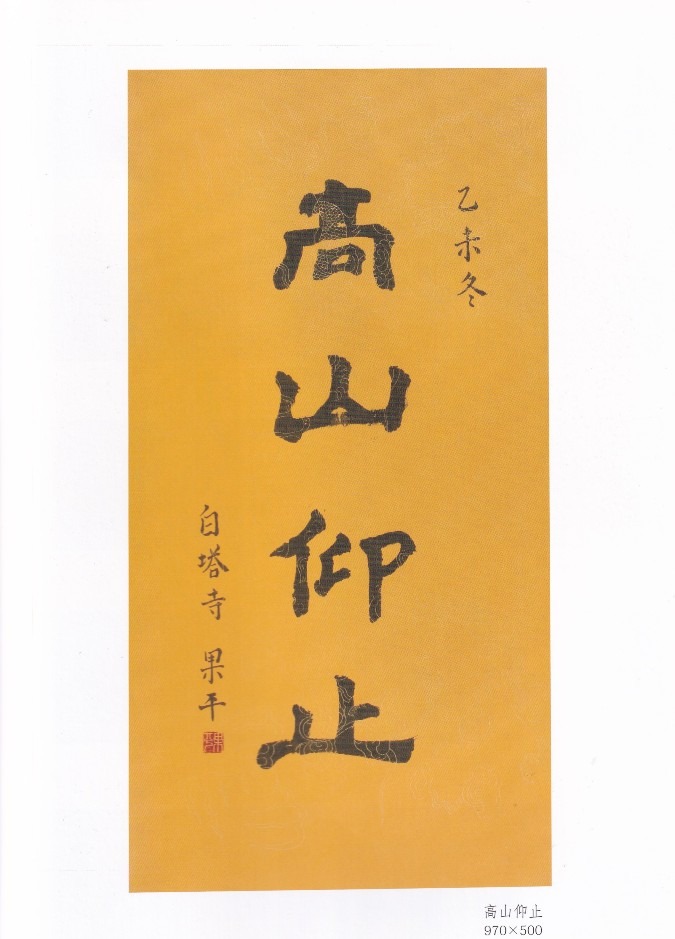 乙未冬
高山仰止
白塔寺 果平
高山仰止
970×500